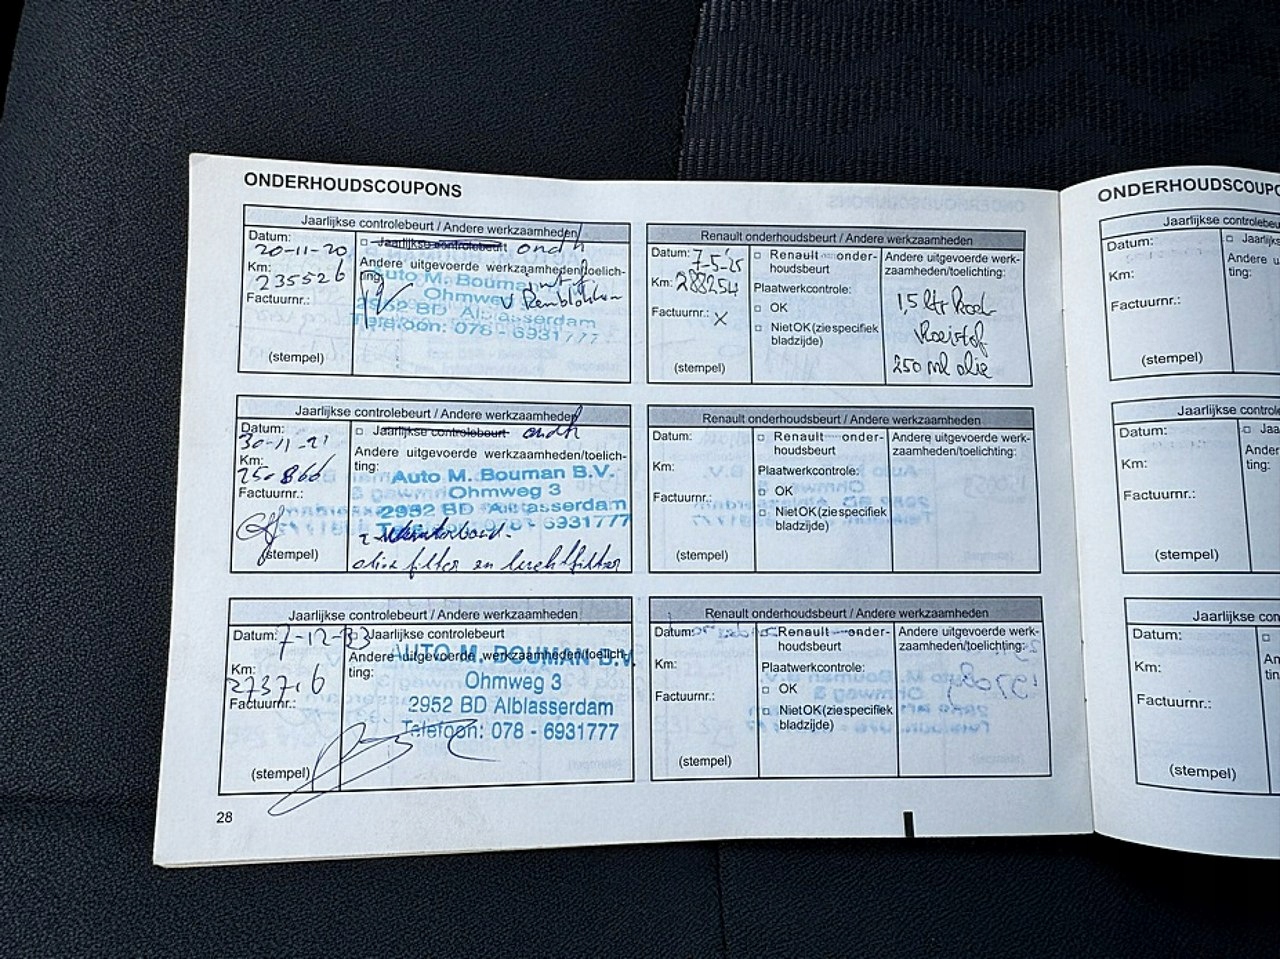 ONDERHOUDSCOUPONS
Jaarlijkse controlebeurt / Andere werkzaamheden
Datum:
20-11-20
Km:
235526
Factuurnr.:
(stempel)
Jaarlijkse controlebeurt ondh
Andere uitgevoerde werkzaamheden/toelich-
ting:
Auto M. Bouman
Ohmweg
V Remblokken
2952 BD Alblasserdam
Telefoon: 078 - 6931777
Renault onderhoudsbeurt / Andere werkzaamheden
Datum: 7-5-25
Km: 288254
Factuurnr.: X
(stempel)
Renault onder-
houdsbeurt
Plaatwerkcontrole:
OK
Niet OK (zie specifiek
bladzijde)
Andere uitgevoerde werk-
zaamheden/toelichting:
1,5 ltr Koel
Vloeistof
250 ml olie
Jaarlijkse controlebeurt / Andere werkzaamheden
Datum:
30-11-21
Km:
Factuurnr.:
(stempel)
Jaarlijkse controlebeurt ondh
Andere uitgevoerde werkzaamheden/toelich-
ting:
Auto M. Bouman B.V.
Ohmweg 3
2952 BD Alblasserdam
Telefoon: 078 - 6931777
olie filter en luchtfilter
Renault onderhoudsbeurt / Andere werkzaamheden
Datum:
Km:
Factuurnr.:
(stempel)
Renault onder-
houdsbeurt
Plaatwerkcontrole:
OK
Niet OK (zie specifiek
bladzijde)
Andere uitgevoerde werk-
zaamheden/toelichting:
Jaarlijkse controlebeurt / Andere werkzaamheden
Datum: 7-12-
Km:
Factuurnr.:
(stempel)
Jaarlijkse controlebeurt
Andere uitgevoerde werkzaamheden/toelich-
ting:
AUTO M. BOUMAN B.V.
Ohmweg 3
2952 BD Alblasserdam
Telefoon: 078 - 6931777
Renault onderhoudsbeurt / Andere werkzaamheden
Datum:
Km:
Factuurnr.:
(stempel)
Renault onder-
houdsbeurt
Plaatwerkcontrole:
OK
Niet OK (zie specifiek
bladzijde)
Andere uitgevoerde werk-
zaamheden/toelichting:
28
ONDERHOUDSCOUPO
Jaarlijkse controlebeu
Datum:
Km:
Factuurnr.:
(stempel)
Jaarlijk
Andere u
ting:
Jaarlijkse control
Datum:
Km:
Factuurnr.:
(stempel)
Jaa
Ander
ting:
Jaarlijkse con
Datum:
Km:
Factuurnr.:
(stempel)
An
tin